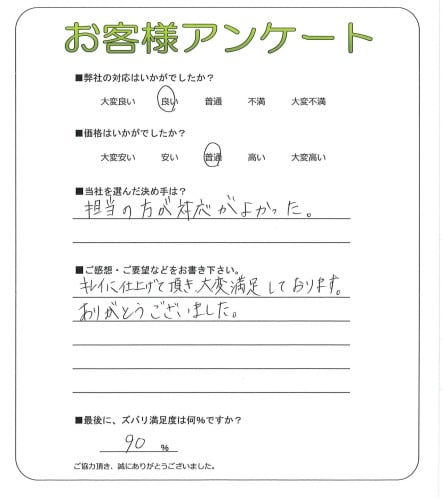 お客様アンケート
■弊社の対応はいかがでしたか？
大変良い 良い 普通 不満 大変不満
■価格はいかがでしたか？
大変安い 安い 普通 高い 大変高い
■当社を選んだ決め手は？
担当の方が対応がよかった。
■ご感想・ご要望などをお書き下さい。
キレイに仕上げて頂き大変満足しております。
ありがとうございました。
■最後に、ズバリ満足度は何％ですか？
90 %
ご協力頂き、誠にありがとうございました。